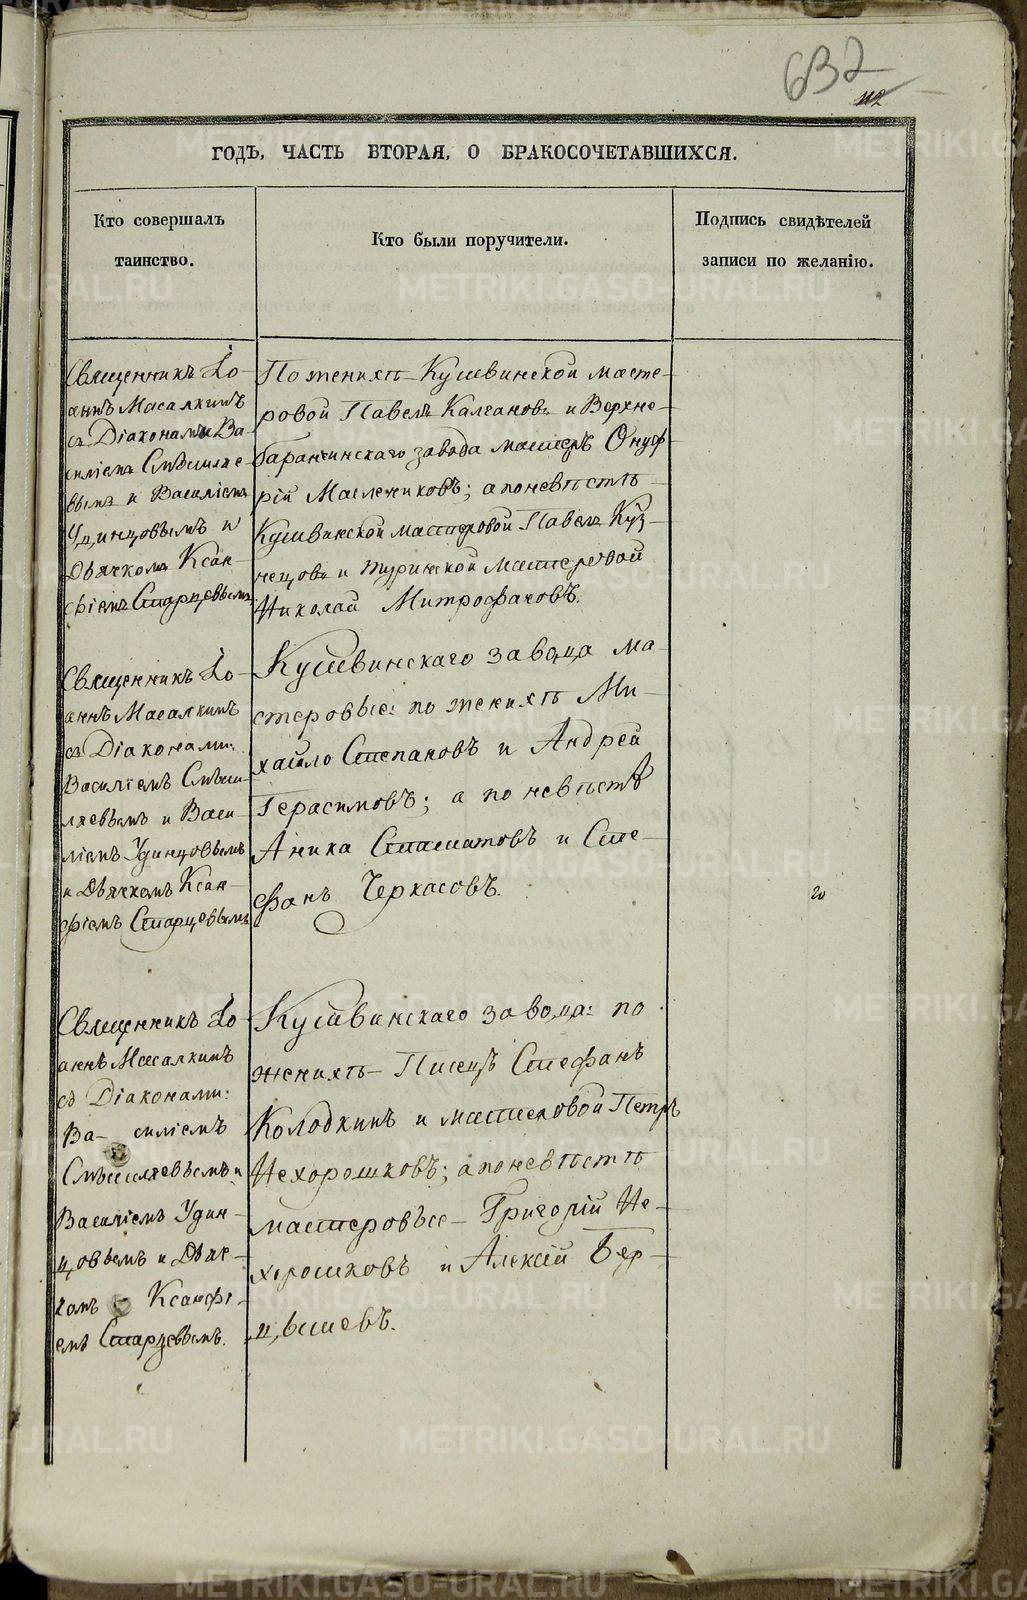 632
112
ГОДЪ, ЧАСТЬ ВТОРАЯ, О БРАКОСОЧЕТАВШИХСЯ.
Кто совершалъ
таинство.
Кто были поручители.
Подпись свидѣтелей
записи по желанію.
Священникъ Іо-
аннъ Масалкинъ
съ Діаконами Ва-
силіемъ Смышляе-
вымъ и Василіемъ
Удинцовымъ и
Дьячкомъ Ксан-
фіемъ Старцевымъ
По женихѣ Кушвинской масте-
ровой Павелъ Калгановъ и Верхне-
баранчинскаго завода мастеръ Онуф-
рій Масленниковъ; а по невѣстѣ
Кушвинской мастеровой Павелъ Куз-
нецовъ и туринской мастеровой
Николай Митрофановъ.
Священникъ Іо-
аннъ Масалкинъ
съ Діаконами:
Василіемъ Смыш-
ляевымъ и Васи-
ліемъ Удинцовымъ
и Дьячкомъ Ксан-
фіемъ Старцевымъ
Кушвинскаго завода ма-
стеровые: по женихѣ Ми-
хайло Степановъ и Андрей
Герасимовъ; а по невѣстѣ
Аника Стаматовъ и Сте-
фанъ Черкасовъ.
Священникъ Іо-
аннъ Масалкинъ
съ Діаконами:
Ва- силіемъ
Смышляевымъ и
Василіемъ Удин-
цовымъ и Дьяч-
комъ Ксанфі-
емъ Старцевымъ.
Кушвинскаго завода: по
женихѣ Писецъ Стефанъ
Колодкинъ и мастеровой Петръ
Нехорошковъ; а по невѣстѣ
мастеровые Григорій Не-
хорошковъ и Алексій Вер-
цышевъ.